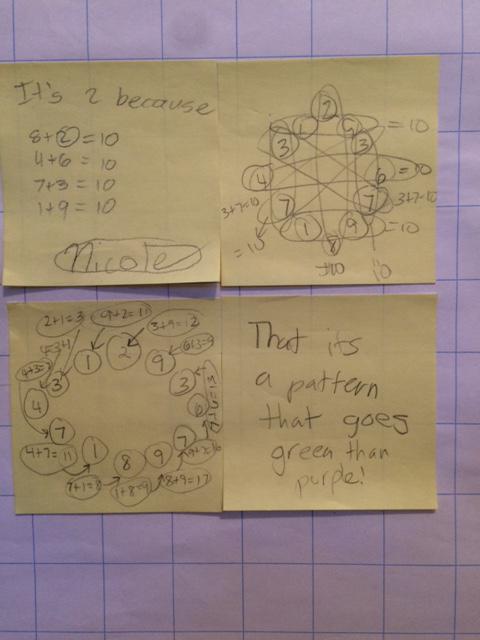 It's 2 because
8+2=10
4+6=10
7+3=10
1+9=10
Nicole
2
1 9 = 10
3 3
4 6 = 10
3+7=10 7 7 3+7=10
1 9 = 10
= 10 8
10
2+1=3 9+2=11 3+9=12
1 2 9
4+3=7
3 3
4 6
7 7
4+7=11 1 8 9
7+1=8 1+8=9 8+9=17
That its
a pattern
that goes
green than
purple!